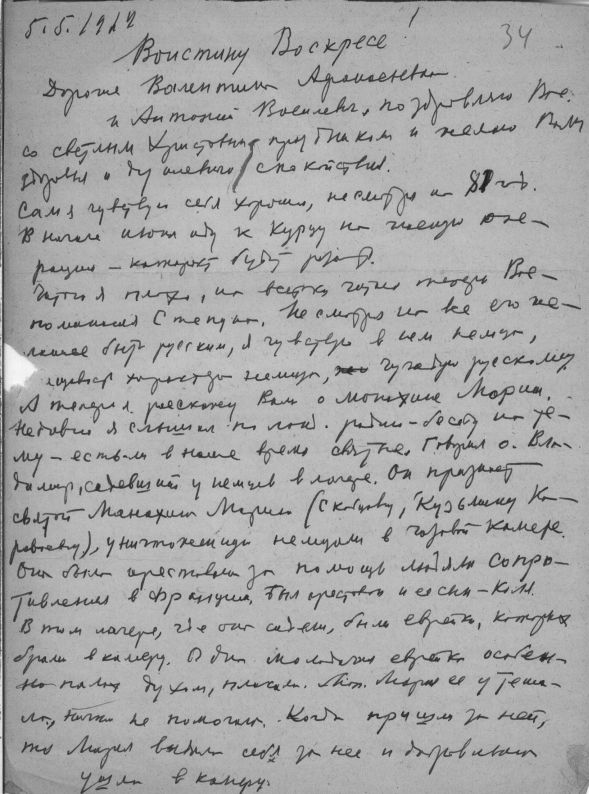 5.5.1977
34
Воистину Воскресе!
Дорогие Валентина Афанасьевна
и Антоний Васильевич, поздравляю Вас
со светлым Христовым праздником и желаю Вам
здоровья и душевного спокойствия.
Сам я чувствую себя хорошо, несмотря на 81 год.
В начале июня иду к Курцу на глазную опе-
рацию – катаракт будут
плохо, но все-таки теперь Вос-
поминания Степуна. Несмотря на все его же-
лание быть русским, я чувствую в нем немца,
характер немца, чуждую русскому.
А теперь я расскажу Вам о монахине Марии.
Недавно я слышал по радио-беседу на те-
му – есть ли в наше время святые. Говорил о. Вла-
димир, сидевший у немцев в лагере. Он признает
святой Монахиню Марию (Скобцову, Кузьмину Ка-
раваеву), уничтоженную немцами в газовой камере.
Она была арестована за помощь людям Сопро-
тивления в Франции, был арестован и ее сын
В том лагере, где она сидела, были еврейки, которых
брали в камеру. Одна молодая еврейка особен-
но пала духом, плакала. Мон. Мария ее утеша-
ла, ничто не помогало. Когда пришли за ней,
то Мария выдала себя за нее и добровольно
ушла в камеру.